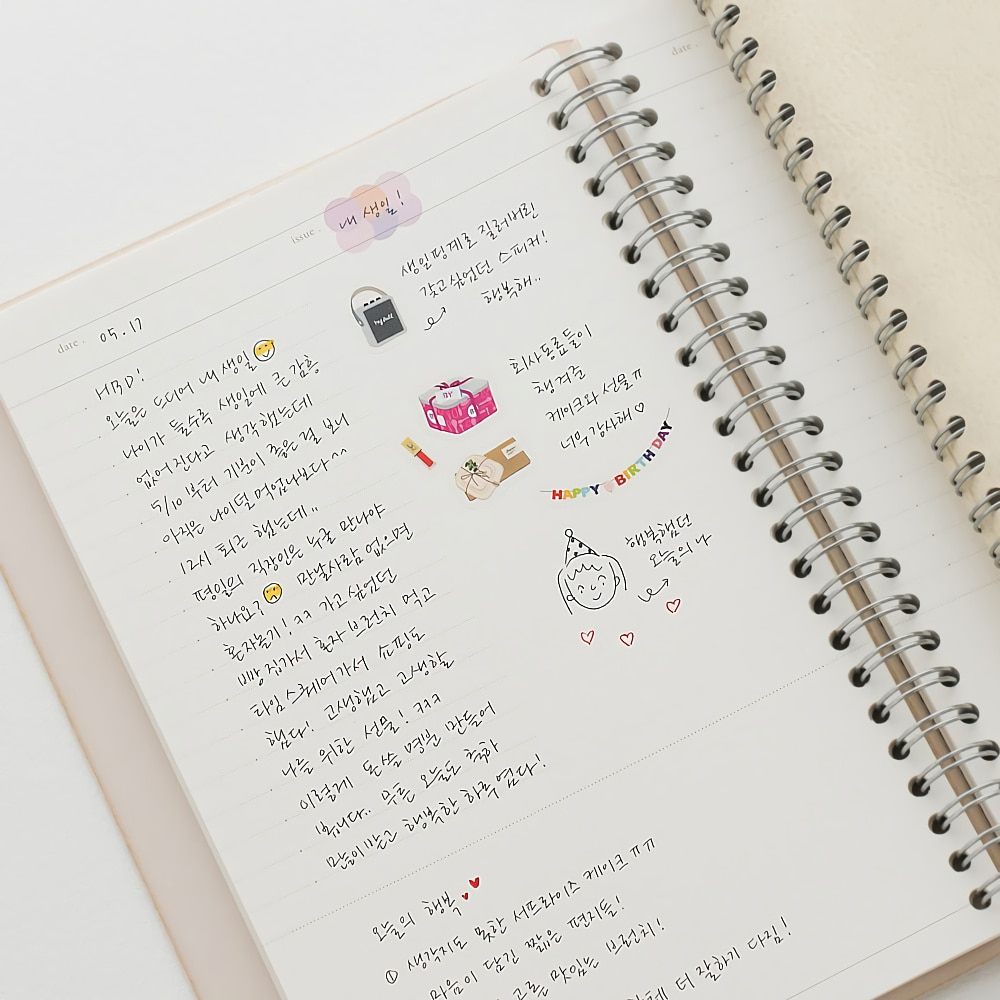 date.
issue. 내 생일!
date. 05.17
HBD!
오늘은 드디어 내 생일
나이가 들수록 생일에 큰 감흥
없어진다고 생각했는데
5/10 부터 기분이 좋은 걸 보니
아직은 나이덜먹었나보다^^
12시 퇴근 했는데..
평일의 직장인은 누굴 만나야
하나요? 만날사람 없으면
혼자놀기! ㅋㅋ 가고싶었던
빵집가서 혼자 브런치 먹고
타임스퀘어가서 쇼핑도
했다! 고생했고 고생할
나를 위한 선물! ㅋㅋㅋ
이렇게 돈쓸 명분 만들어
봅니다.. 무튼 오늘도 축하
많이받고 행복한 하루였다!
생일핑계로 질러버린
갖고싶었던 스피커!
행복해..
회사동료들이
챙겨준
케이크와 선물ㅠ
너무감사해♡
HAPPY BIRTHDAY
행복했던
오늘의 나
오늘의 행복
① 생각지도 못한 서프라이즈 케이크ㅠㅠ
마음이 담긴 짧은 편지들!
고른 맛있는 브런치!
더 잘하기 다짐!